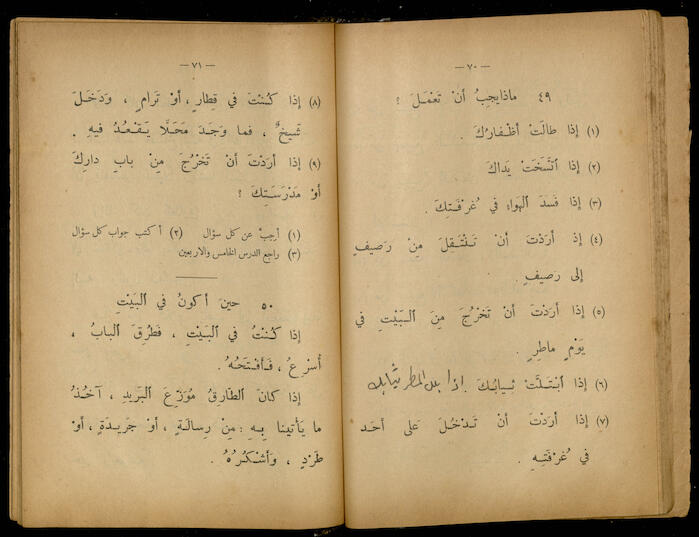 — ٧٠ —
٤٩ ماذا يجبُ أنْ تَعْمَلَ ؟
(١) إذا طالَتْ أظْفارُكَ .
(٢) إذا اتَّسَخَتْ يَداكَ
(٣) إذا فَسَدَ الهَواءُ في غُرْفَتِكَ .
(٤) إذ أرَدْتَ أنْ تَنْتَقِلَ مِنْ رَصيفٍ
إلى رَصيفٍ .
(٥) إذا أرَدْتَ أنْ تَخْرُجَ مِنَ الْبَيْتِ في
يَوْمٍ ماطِرٍ .
(٦) إذا ابْتَلَّتْ ثِيابُكَ . اذا بلل المطر ثيابك
(٧) إذا أرَدْتَ أنْ تَدْخُلَ عَلى أحَدٍ
في غُرْفَتِهِ .
— ٧١ —
(٨) إذا كُنْتَ في قِطارٍ ، أوْ تَرامٍ ، وَدَخَلَ
شَيخٌ ، فما وَجَدَ مَحَلًّا يَقْعُدُ فيهِ .
(٩) إذا أرَدْتَ أنْ تَخْرُجَ مِنْ بابِ دارِكَ
أوْ مَدْرَسَتِكَ ؟
(١) أجِبْ عن كل سؤال (٢) أكتب جواب كل سؤال
(٣) راجع الدرس الخامس والاربعين
٥٠ حينَ أكونُ في البَيْتِ
إذا كُنْتُ في الْبَيْتِ ، فَطُرِقَ البابُ ،
أُسْرِعُ ، فَأفْتَحُهُ .
إذا كانَ الطّارِقُ مُوَزِّعَ الْبَريدِ ، آخُذُ
ما يَأْتينا بِهِ : مِنْ رِسالَةٍ ، أوْ جَريدَةٍ ، أوْ
طَرْدٍ ، وَأشْكُرُهُ .